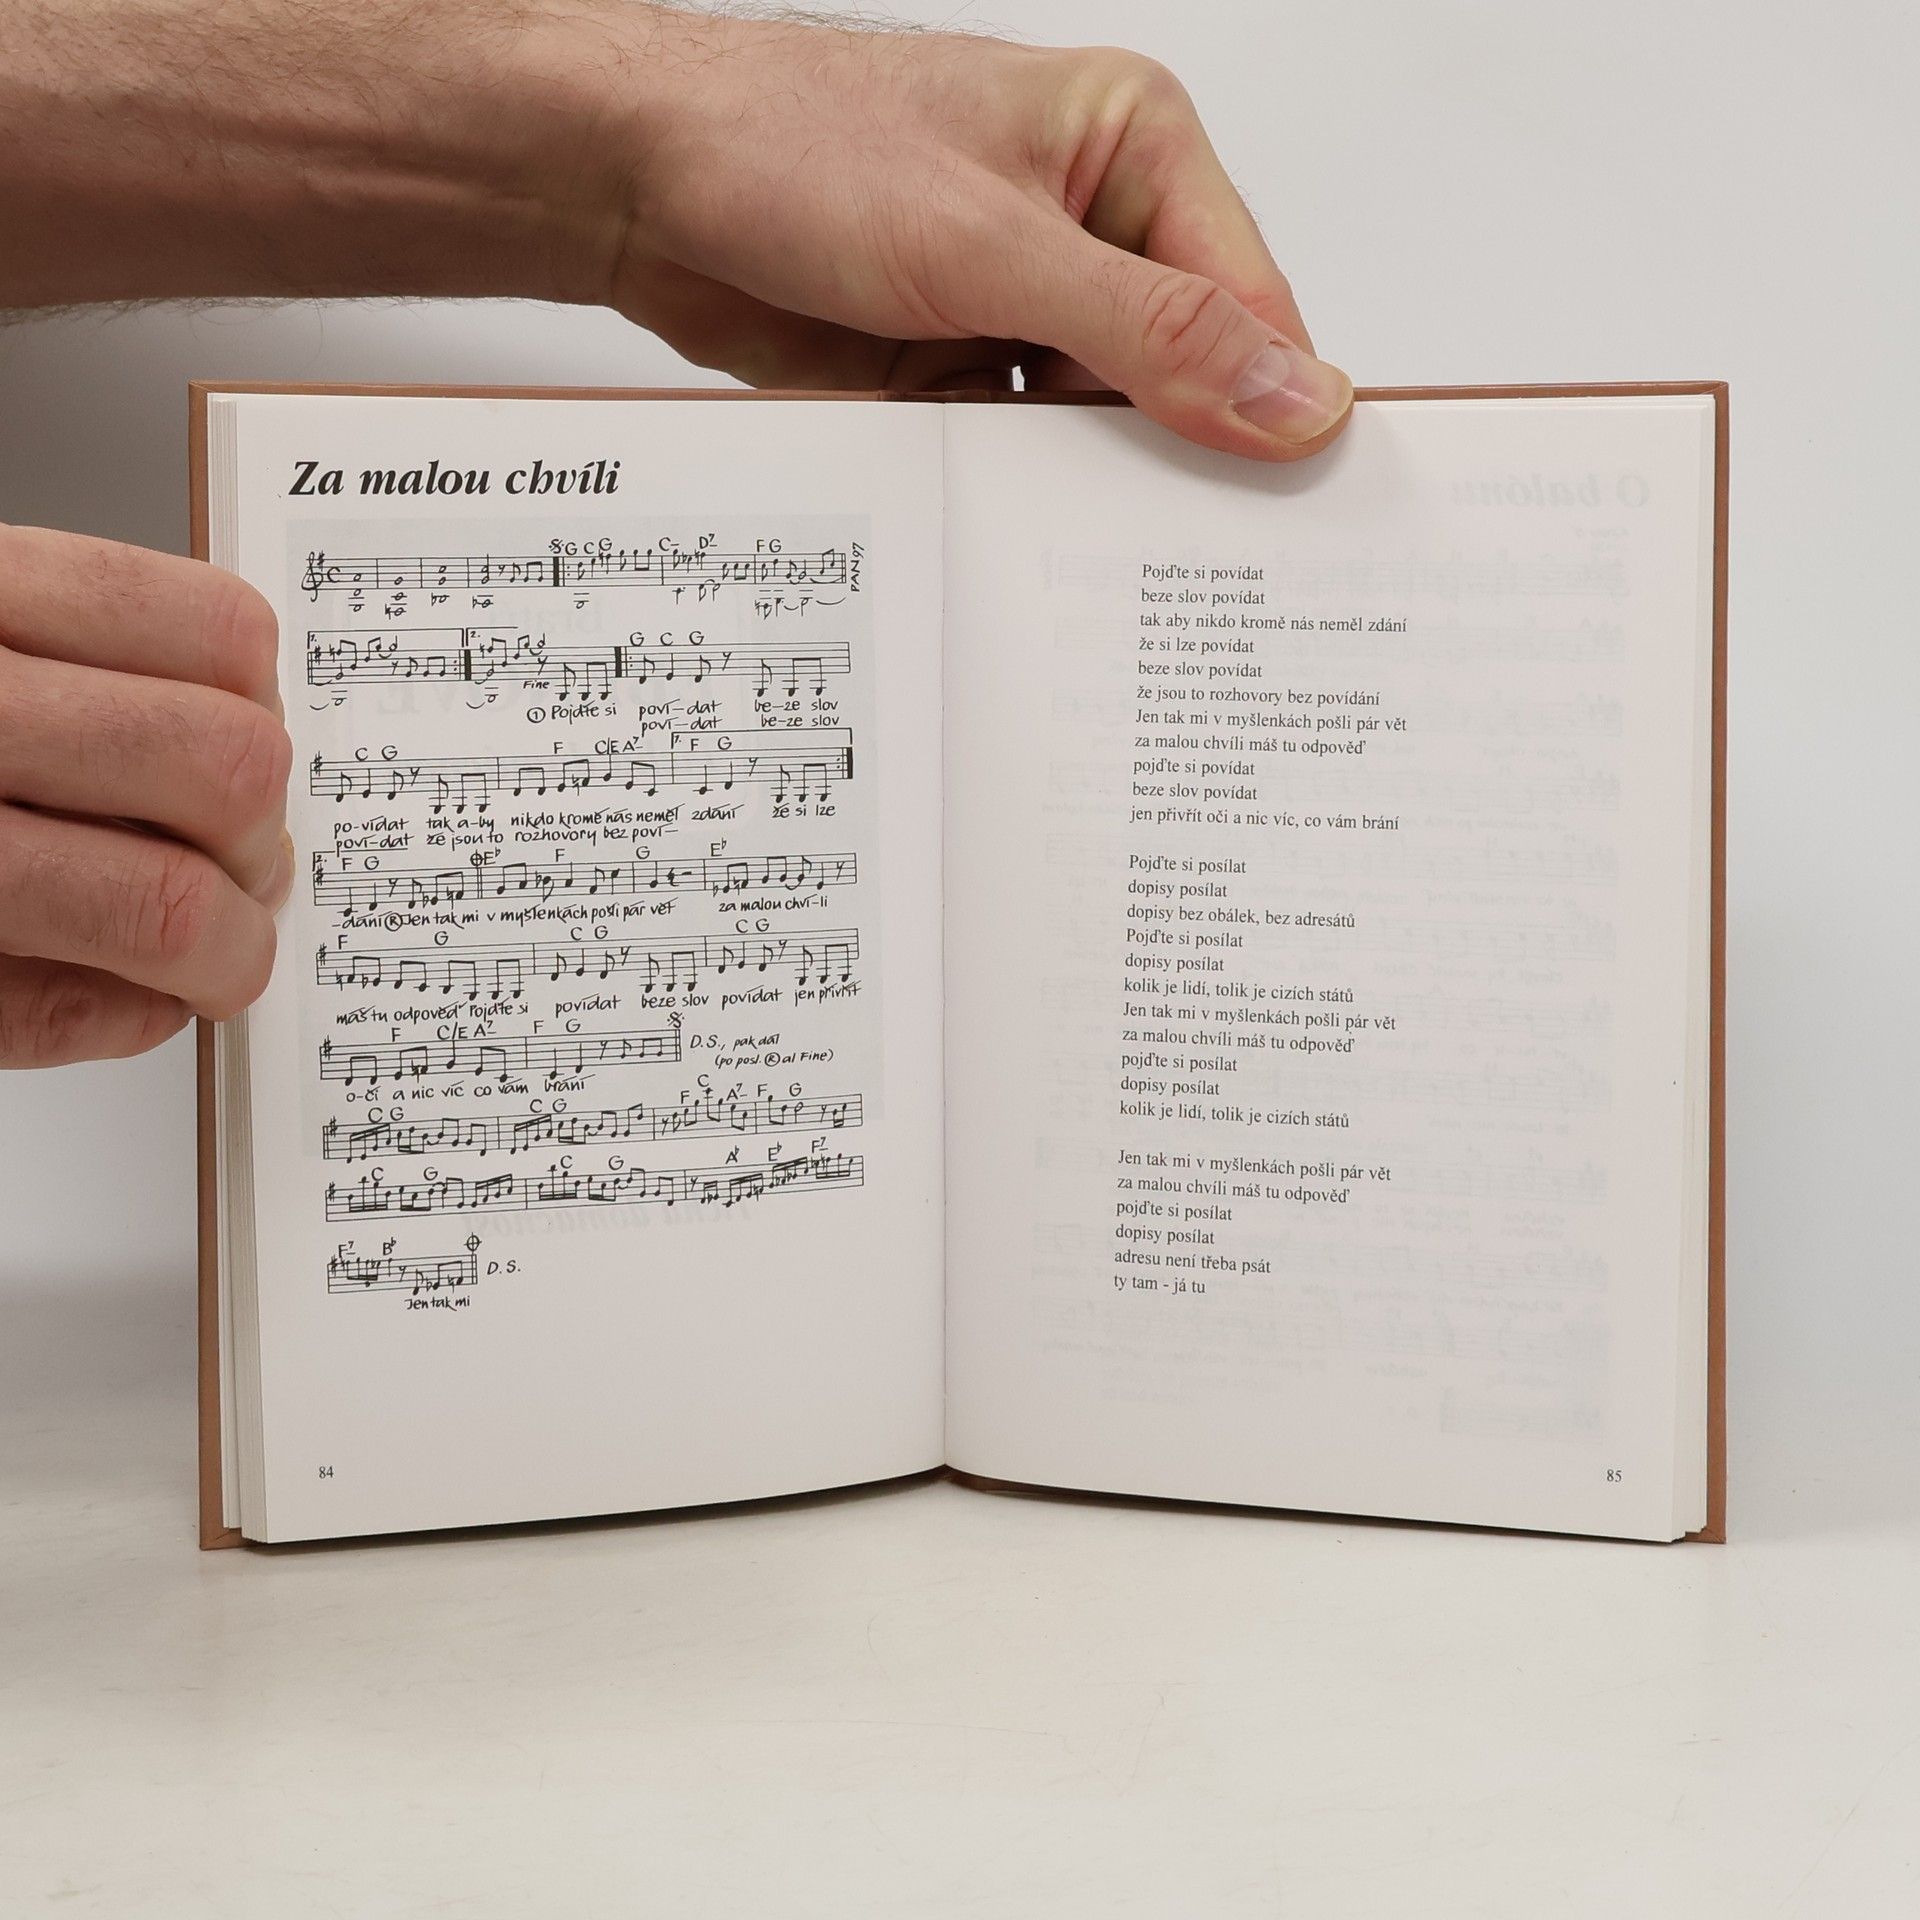 Za malou chvíli
G C G C- D7 F G PAN97
1. 2. G C G
Fine
① Pojďte si poví-dat be-ze slov
poví-dat be-ze slov
C G F C/E A7 1. F G
po-vídat tak a-by nikdo kromě nás neměl zdání že si lze
poví-dat že jsou to rozhovory bez poví-
2. F G Eb F G Eb
-dání Ⓡ Jen tak mi v myšlenkách pošli pár vět za malou chví-li
F G C G C G
máš tu odpověď Pojďte si povídat beze slov povídat jen přivřít
F C/E A7 F G
D.S., pak dál
(po posl. Ⓡ al Fine)
o-čí a nic víc co vám brání
C G C G F C A7 F G
C G C G Ab Eb F7
F7 Bb
D.S.
Jen tak mi
84
Pojďte si povídat
beze slov povídat
tak aby nikdo kromě nás neměl zdání
že si lze povídat
beze slov povídat
že jsou to rozhovory bez povídání
Jen tak mi v myšlenkách pošli pár vět
za malou chvíli máš tu odpověď
pojďte si povídat
beze slov povídat
jen přivřít oči a nic víc, co vám brání
Pojďte si posílat
dopisy posílat
dopisy bez obálek, bez adresátů
Pojďte si posílat
dopisy posílat
kolik je lidí, tolik je cizích států
Jen tak mi v myšlenkách pošli pár vět
za malou chvíli máš tu odpověď
pojďte si posílat
dopisy posílat
kolik je lidí, tolik je cizích států
Jen tak mi v myšlenkách pošli pár vět
za malou chvíli máš tu odpověď
pojďte si posílat
dopisy posílat
adresu není třeba psát
ty tam - já tu
85